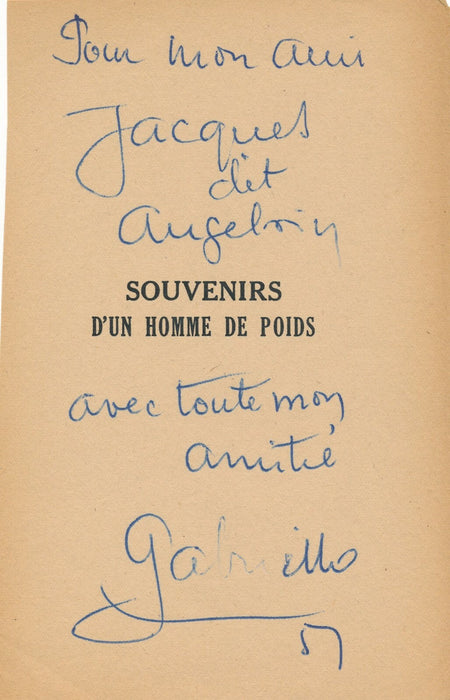 Pour mon ami
Jacques
dit
Angelvin
SOUVENIRS
D'UN HOMME DE POIDS
avec toute mon
amitié
Gabriello
57